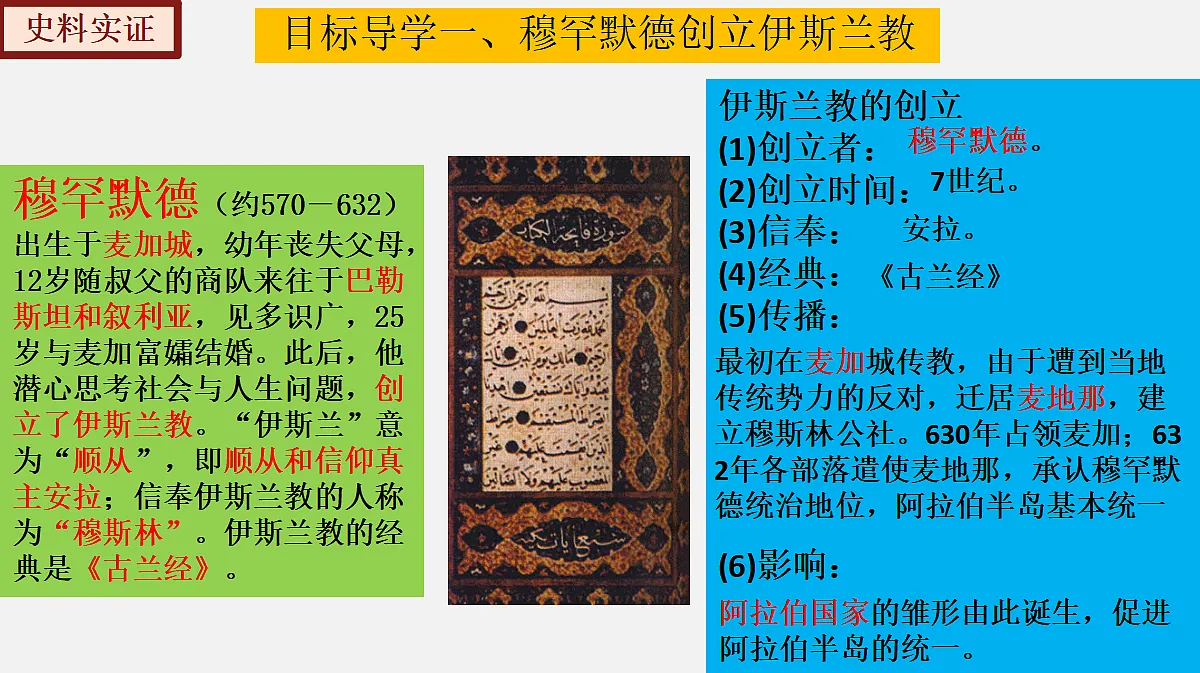 史料实证
目标导学一、穆罕默德创立伊斯兰教
穆罕默德（约570－632）
出生于麦加城，幼年丧失父母，
12岁随叔父的商队来往于巴勒
斯坦和叙利亚，见多识广，25
岁与麦加富孀结婚。此后，他
潜心思考社会与人生问题，创
立了伊斯兰教。“伊斯兰”意
为“顺从”，即顺从和信仰真
主安拉；信奉伊斯兰教的人称
为“穆斯林”。伊斯兰教的经
典是《古兰经》。
سورة فاتحة الكتاب
伊斯兰教的创立
(1)创立者： 穆罕默德。
(2)创立时间：7世纪。
(3)信奉： 安拉。
(4)经典： 《古兰经》
(5)传播：
最初在麦加城传教，由于遭到当地
传统势力的反对，迁居麦地那，建
立穆斯林公社。630年占领麦加；63
2年各部落遣使麦地那，承认穆罕默
德统治地位，阿拉伯半岛基本统一
(6)影响：
阿拉伯国家的雏形由此诞生，促进
阿拉伯半岛的统一。